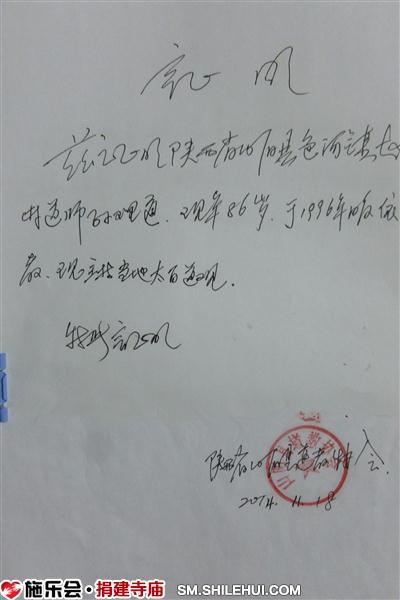 证明
兹证明陕西省山阳县色河镇
村道师孙理通.现年86岁.于1996年皈依
教.现主持当地太白道观.
特此证明
陕西省山阳县道教协会.
2014.11.18
施乐会·捐建寺庙 SM.SHILEHUI.COM